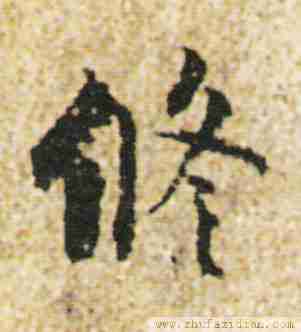 修
www.shufazidian.com